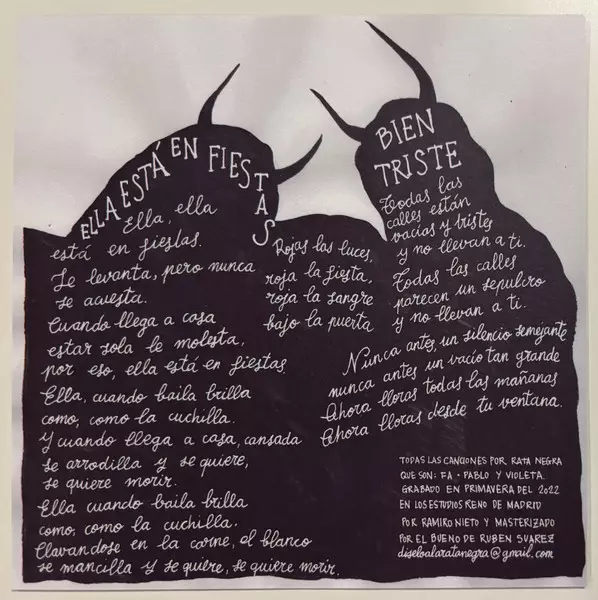 ELLA ESTÁ EN FIESTAS
Ella, ella
está en fiestas.
Se levanta, pero nunca
se acuesta.
Cuando llega a casa
estar sola le molesta,
por eso, ella está en fiestas
Ella, cuando baila brilla
como, como la cuchilla.
Y cuando llega a casa, cansada
se arrodilla y se quiere,
se quiere morir.
Ella cuando baila brilla
como, como la cuchilla.
Clavandose en la carne, el blanco
se mancilla y se quiere, se quiere morir.
Rojas las luces,
roja la fiesta,
roja la sangre
bajo la puerta
BIEN
TRISTE
Todas las
calles están
vacías y tristes
y no llevan a ti.
Todas las calles
parecen un sepulcro
y no llevan a ti.
Nunca antes, un silencio semejante
nunca antes un vacío tan grande
Ahora lloras todas las mañanas
Ahora lloras desde tu ventana.
TODAS LAS CANCIONES POR RATA NEGRA
QUE SON: FA - PABLO Y VIOLETA.
GRABADO EN PRIMAVERA DEL 2022
EN LOS ESTUDIOS RENO DE MADRID
POR RAMIRO NIETO Y MASTERIZADO
POR EL BUENO DE RUBEN SUAREZ
diseloalaratanegra@gmail.com